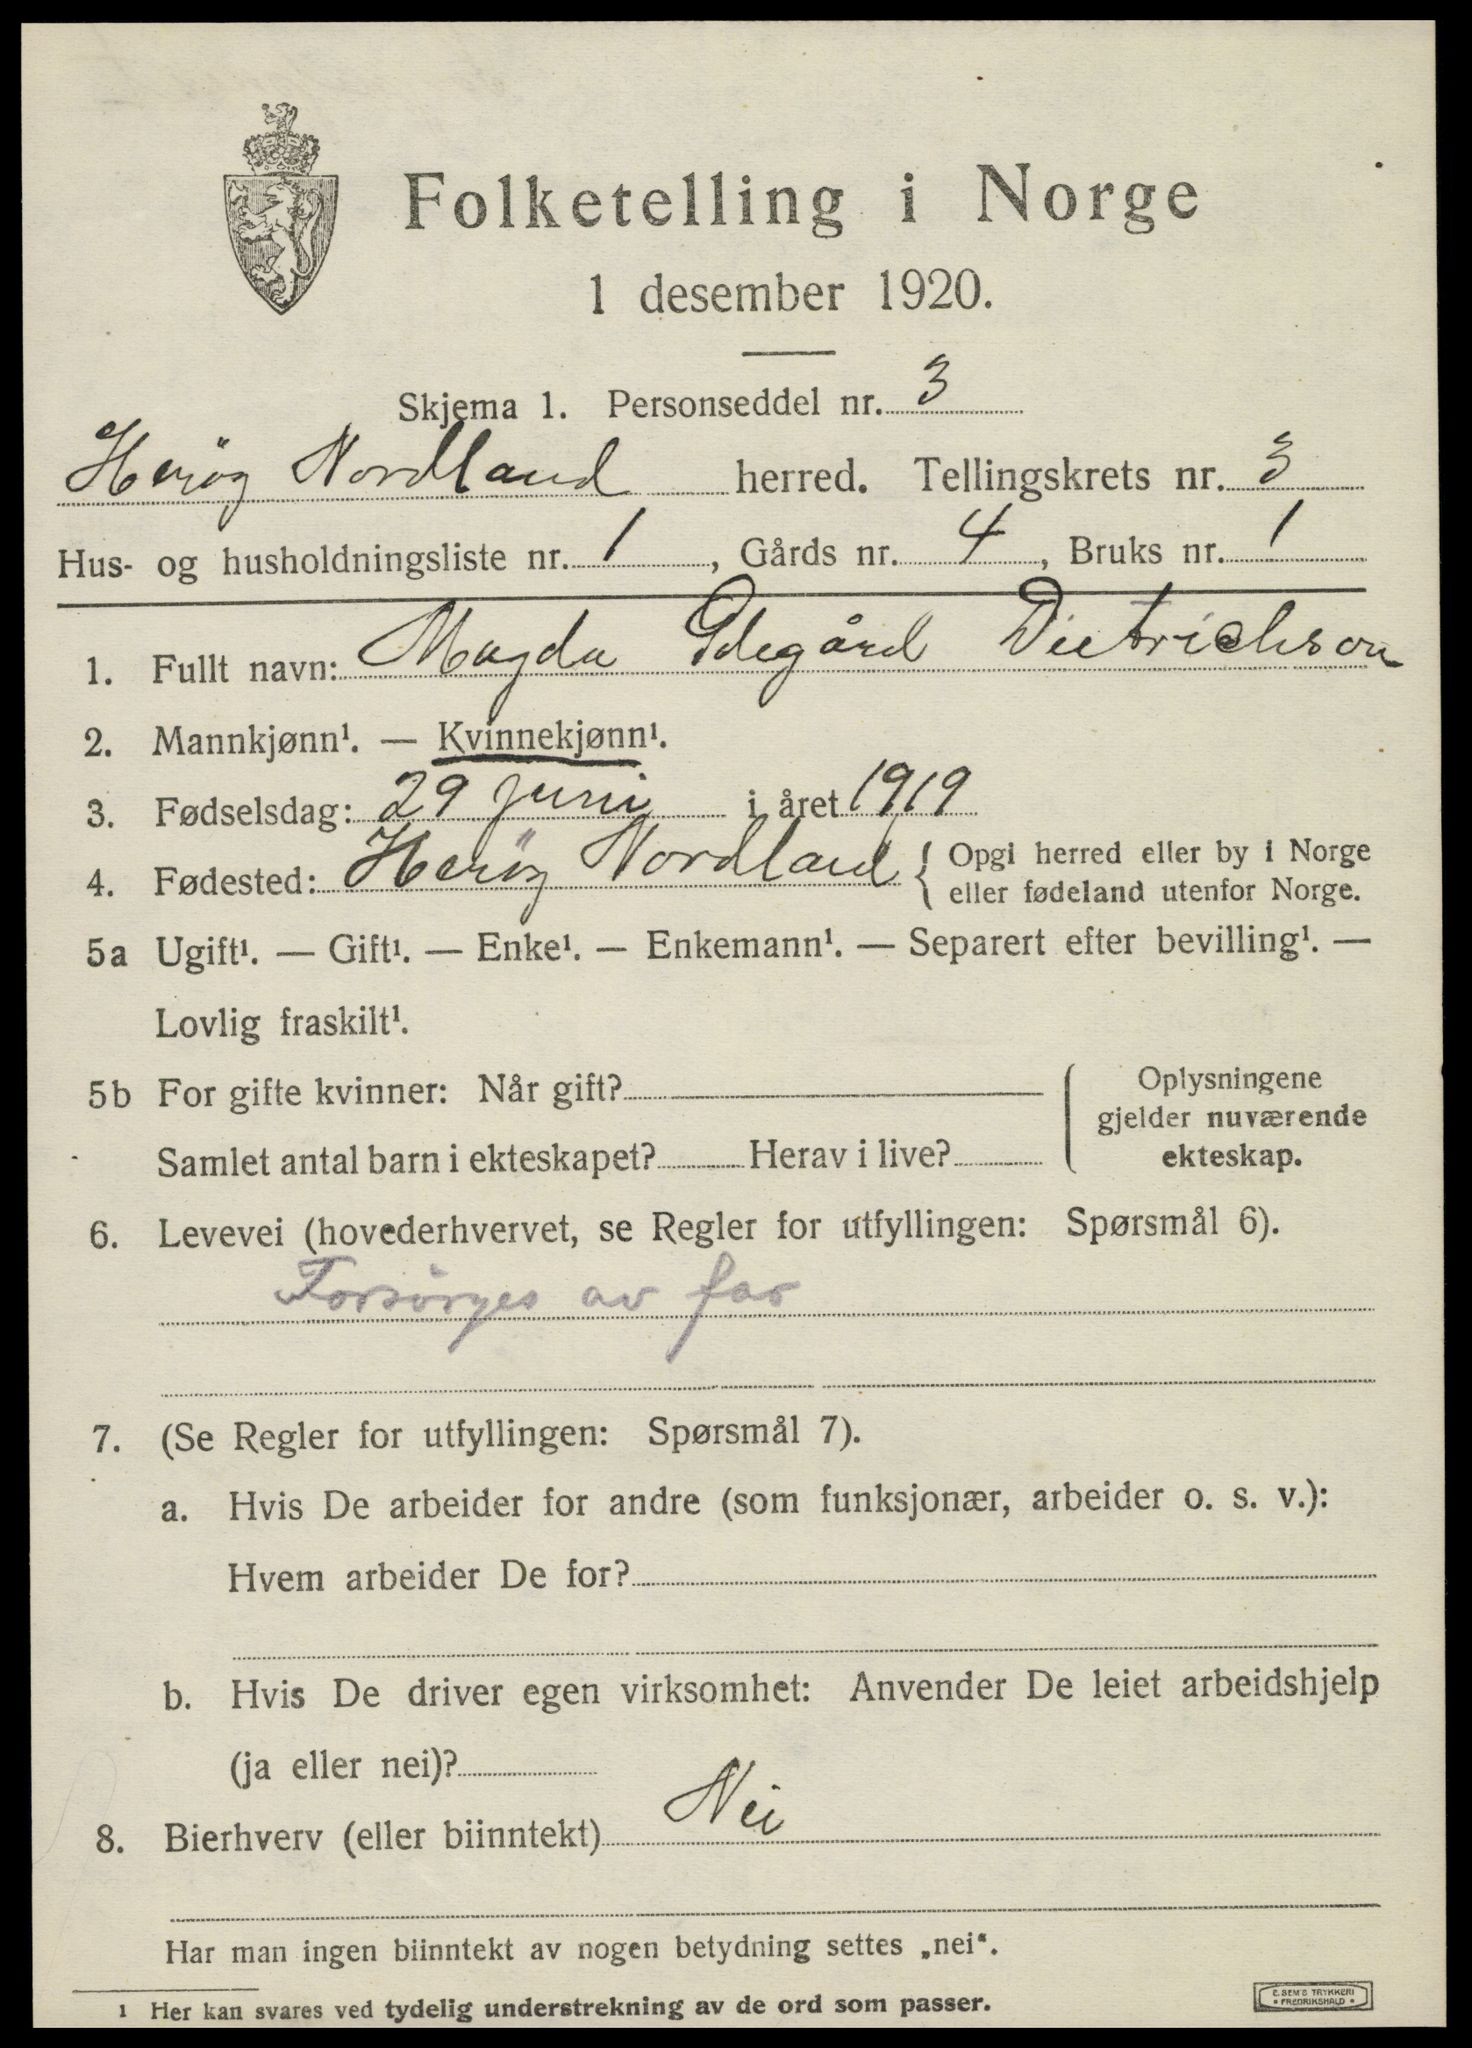 Folketelling i Norge
1 desember 1920.
Skjema 1. Personseddel nr. 3
Herøy Nordland herred. Tellingskrets nr. 3
Hus- og husholdningsliste nr. 1, Gårds nr. 4, Bruks nr. 1
1. Fullt navn: Magda Odegård Dietrichson
2. Mannkjønn¹. — Kvinnekjønn¹.
3. Fødselsdag: 29 juni i året 1919
4. Fødested: Herøy Nordland { Opgi herred eller by i Norge
eller fødeland utenfor Norge.
5a Ugift¹. — Gift¹. — Enke¹. — Enkemann¹. — Separert efter bevilling¹. —
Lovlig fraskilt¹.
5b For gifte kvinner: Når gift?
Samlet antal barn i ekteskapet? Herav i live?
Oplysningene
gjelder nuværende
ekteskap.
6. Levevei (hovederhvervet, se Regler for utfyllingen: Spørsmål 6).
Forsørges av far
7. (Se Regler for utfyllingen: Spørsmål 7).
a. Hvis De arbeider for andre (som funksjonær, arbeider o. s. v.):
Hvem arbeider De for?
b. Hvis De driver egen virksomhet: Anvender De leiet arbeidshjelp
(ja eller nei)?
8. Bierhverv (eller biinntekt) Nei
Har man ingen biinntekt av nogen betydning settes „nei“.
1 Her kan svares ved tydelig understrekning av de ord som passer.
E. SEM'S TRYKKERI
• FREDRIKSHALD •